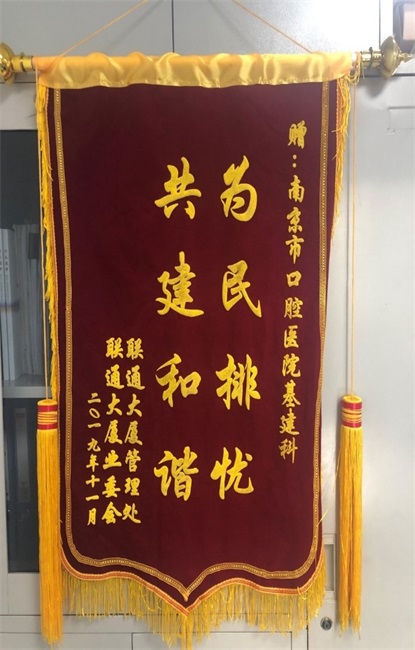 赠：南京市口腔医院基建科
为民排忧
共建和谐
联通大厦管理处
联通大厦业委会
二〇一九年十一月